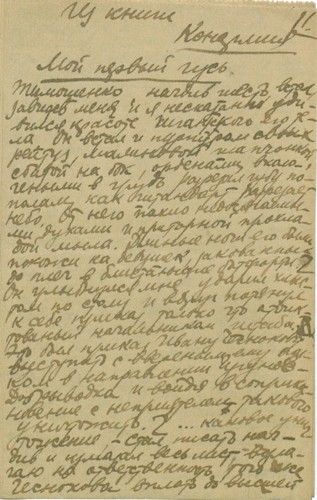 Из книги
Конармия
Мой первый гусь.
Тимошенко начдив шесть встал
завидев меня и я несказанно уди-
вился красоте гигантского его те-
ла. Он встал и пурпуром своих
рейтуз, малиновой шапочкой
сбитой на бок, орденами вколо-
ченными в грудь разрезал избу по-
полам как штандарт разрезает
небо. От него пахло
духами и приторной прохла-
дой мыла. Длинные ноги его были
похожи на девушек, закованных
до плеч в блестящие ботфорты
Он улыбнулся мне ударил хлыс-
том по столу и вдруг потянул
к себе только что отдик-
тованный начальником штаба
Это был приказ Ивану Чеснокову
выступить с вверенным ему пол-
ком в направлении Чугунов-
Добрыводка и войдя в соприкос-
новение с неприятелем такового
уничтожить ... каковое унич-
тожение - стал писать нач-
див и измазал весь лист - возла-
гаю на ответственность того же
Чеснокова вплоть до высшей